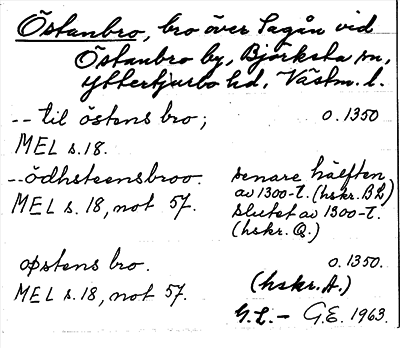 Östanbro, bro över Sagån vid
Östanbro by, Björksta sn,
Yttertjurbo hd, Västm. l.
-- til östens bro; o. 1350
MEL s. 18.
-- ödhsteensbroo. senare hälften
av 1300-t. (hskr. B L)
MEL s. 18, not 57. slutet av 1300-t.
(hskr. Q.)
øpstens bro. o. 1350.
MEL s. 18, not 57. (hskr. A.)
G. L. – G.E. 1963.